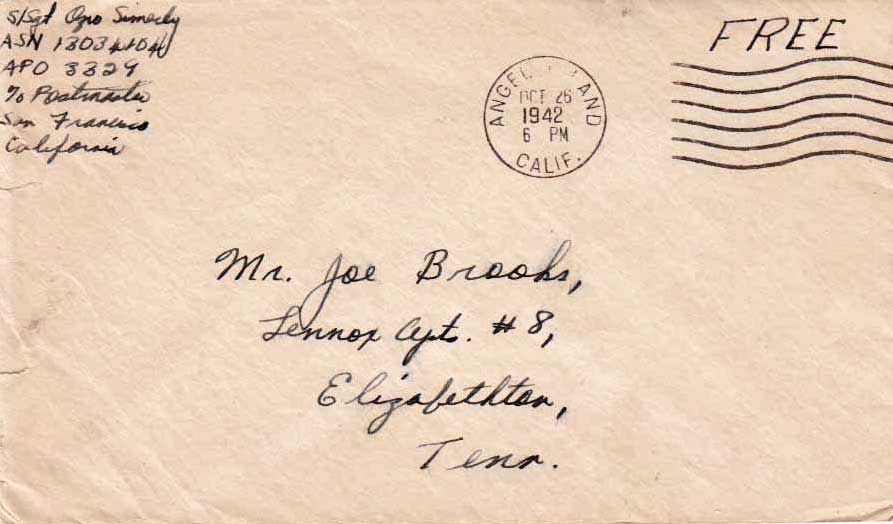 S/Sgt Simerly
ASN
APO 3329
c/o Postmaster
San Francisco
California
FREE
ANGEL ISLAND
OCT 26
1942
6 PM
CALIF.
Mr. Joe Brooks,
Lennox Apts. #8,
Elizabethton,
Tenn.